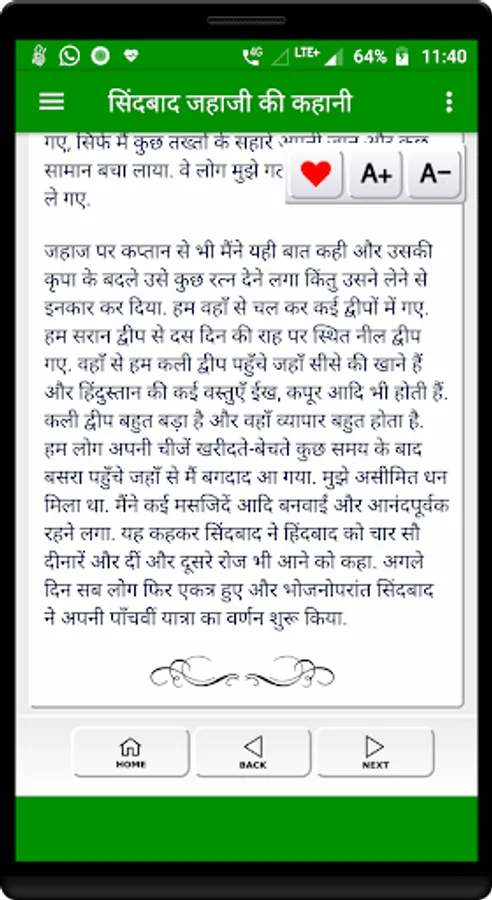 4G LTE+ 64% 11:40
सिंदबाद जहाजी की कहानी
गए, सिर्फ मैं कुछ तख्तों के सहारे अपनी जान और कुछ
सामान बचा लाया. वे लोग मुझे
ले गए.
A+ A−
जहाज पर कप्तान से भी मैंने यही बात कही और उसकी
कृपा के बदले उसे कुछ रत्न देने लगा किंतु उसने लेने से
इनकार कर दिया. हम वहाँ से चल कर कई द्वीपों में गए.
हम सरान द्वीप से दस दिन की राह पर स्थित नील द्वीप
गए. वहाँ से हम कली द्वीप पहुँचे जहाँ सीसे की खाने हैं
और हिंदुस्तान की कई वस्तुएँ ईख, कपूर आदि भी होती हैं.
कली द्वीप बहुत बड़ा है और वहाँ व्यापार बहुत होता है.
हम लोग अपनी चीजें खरीदते-बेचते कुछ समय के बाद
बसरा पहुँचे जहाँ से मैं बगदाद आ गया. मुझे असीमित धन
मिला था. मैंने कई मसजिदें आदि बनवाईं और आनंदपूर्वक
रहने लगा. यह कहकर सिंदबाद ने हिंदबाद को चार सौ
दीनारें और दीं और दूसरे रोज भी आने को कहा. अगले
दिन सब लोग फिर एकत्र हुए और भोजनोपरांत सिंदबाद
ने अपनी पाँचवीं यात्रा का वर्णन शुरू किया.
HOME BACK NEXT